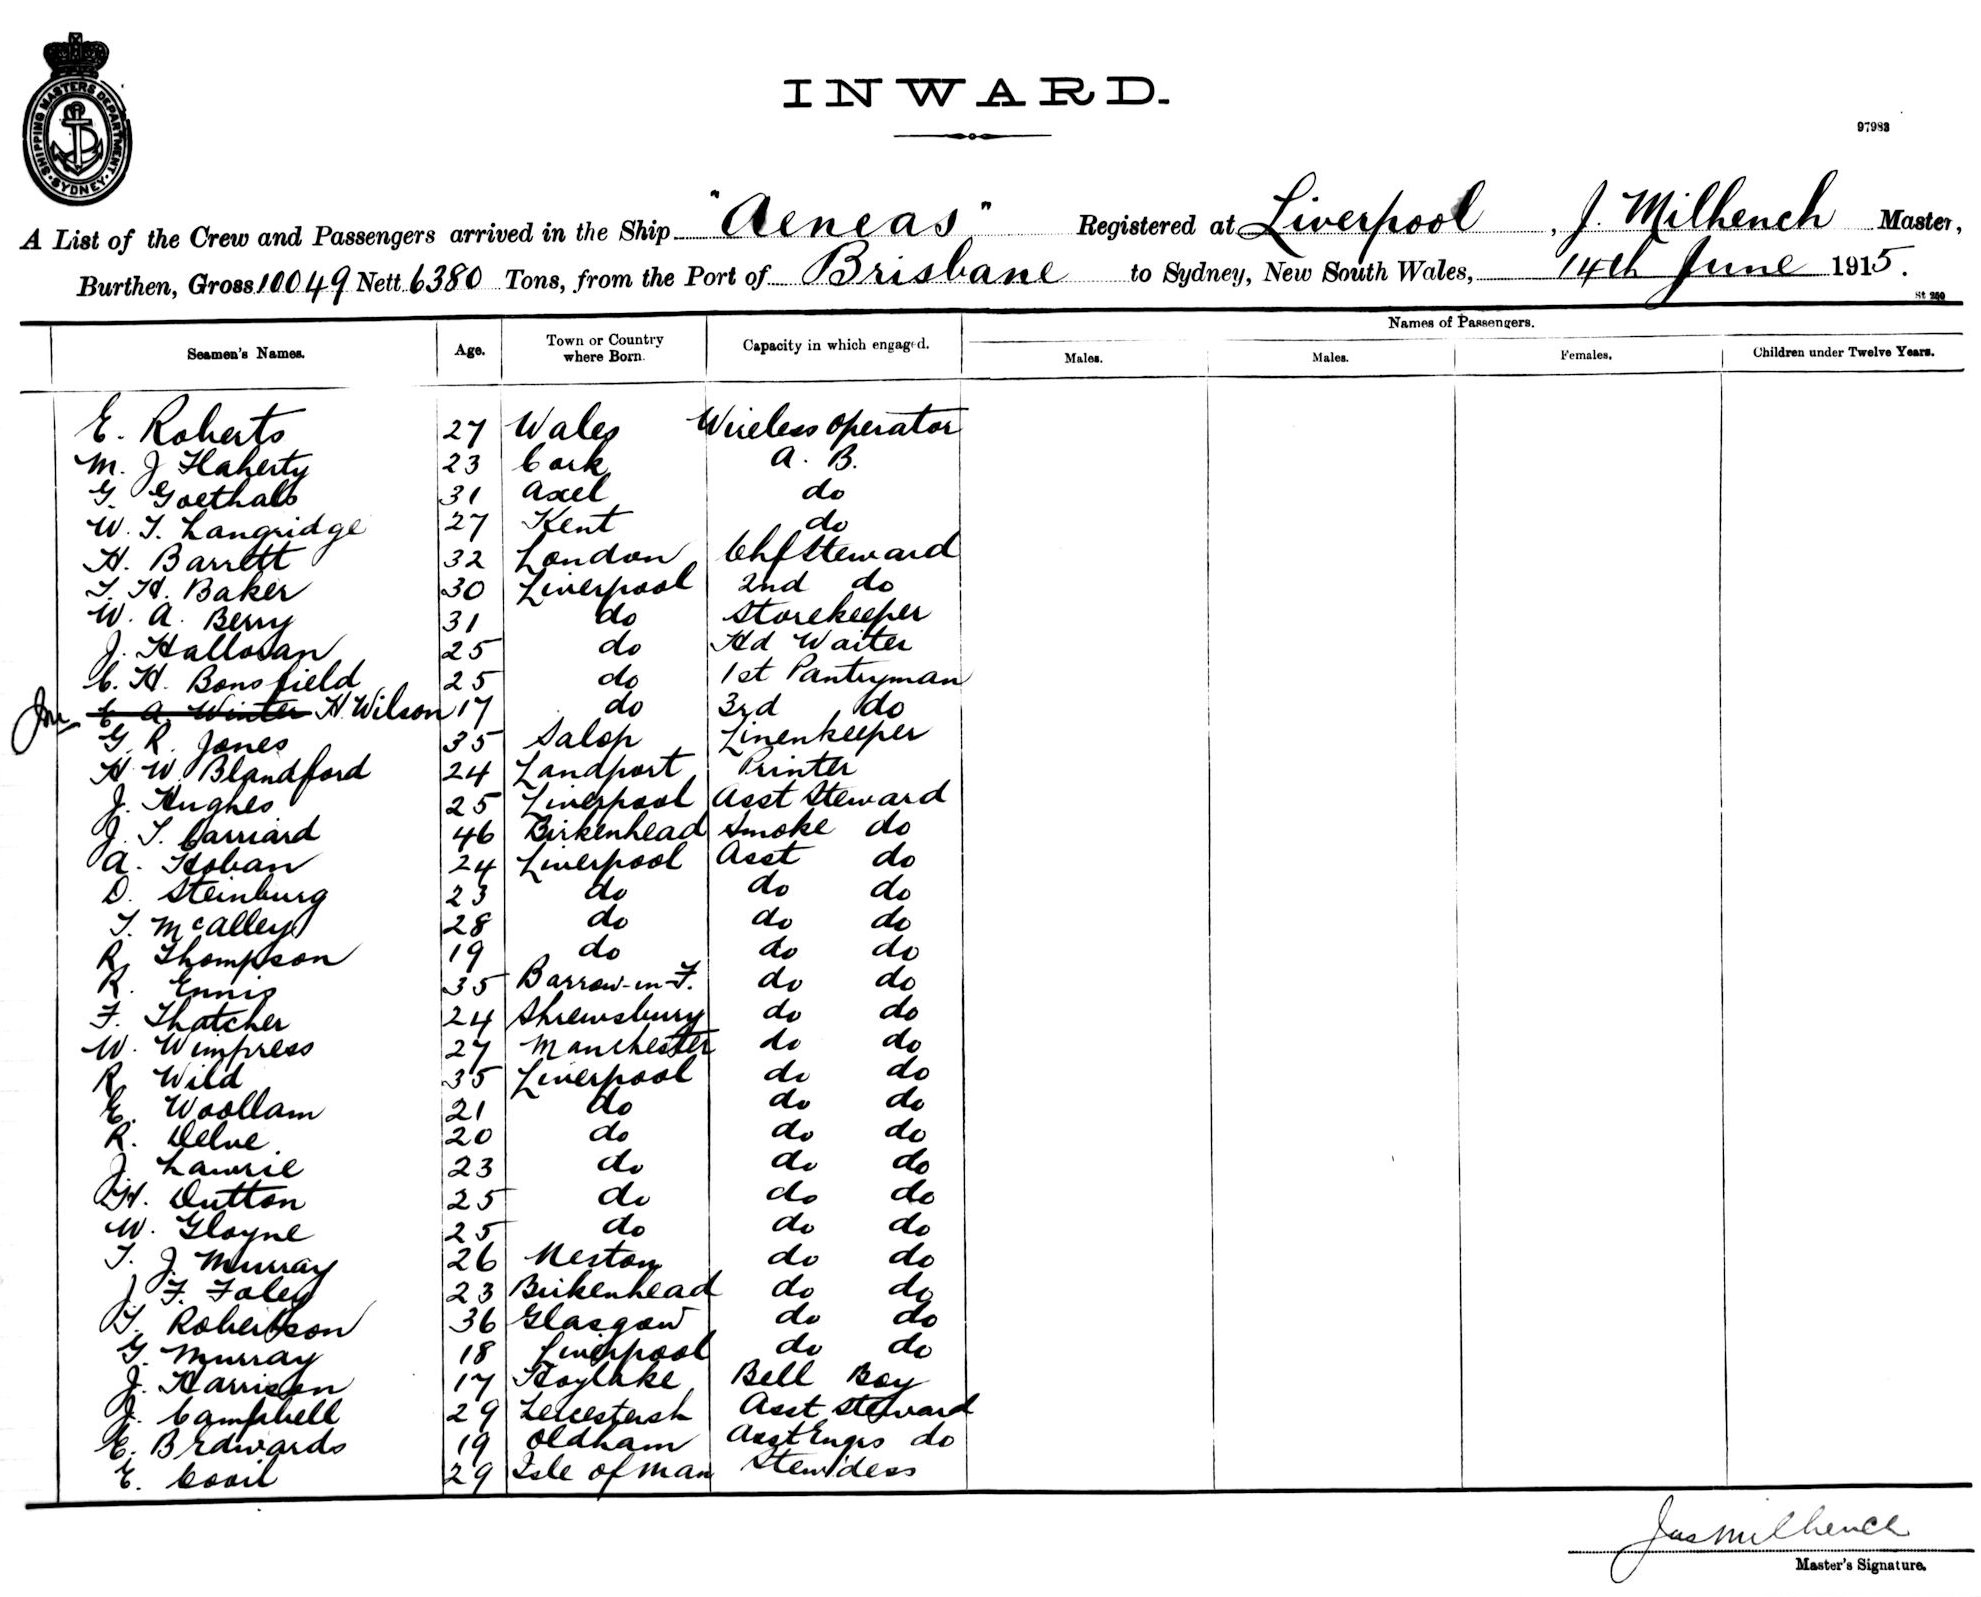 SHIPPING MASTERS DEPARTMENT
SYDNEY
INWARD.
97983
A List of the Crew and Passengers arrived in the Ship "Aeneas" Registered at Liverpool, J. Milhench Master,
Burthen, Gross 10049 Nett 6380 Tons, from the Port of Brisbane to Sydney, New South Wales, 14th June 1915.
St 250
Seamen's Names. Age. Town or Country where Born. Capacity in which engaged. Names of Passengers.
Males. Males. Females. Children under Twelve Years.
E. Roberts 27 Wales Wireless operator
M. J Flaherty 23 Cork A. B.
G. Goethals 31 Axel do
W. T. Langridge 27 Kent do
H. Barrett 32 London Chf Steward
T. H. Baker 30 Liverpool 2nd do
W. A. Berry 31 do Storekeeper
J. Halloran 25 do Hd Waiter
C. H. Bonsfield 25 do 1st Pantryman
E A Winter H. Wilson 17 do 3rd do
G. R. Jones 35 Salop Linenkeeper
H W Blandford 24 Landport Printer
J. Hughes 25 Liverpool Asst Steward
J. T. Carriard 46 Birkenhead Smoke do
A. Hoban 24 Liverpool Asst do
D. Steinburg 23 do do do
T. McAlley 28 do do do
R. Thompson 19 do do do
R. Ennis 35 Barrow-in-F. do do
F. Thatcher 24 Shrewsbury do do
W. Wimpress 27 Manchester do do
R. Wild 35 Liverpool do do
E. Woollam 21 do do do
R. Delve 20 do do do
J. Lawrie 23 do do do
H. Dutton 25 do do do
W. Gloyne 25 do do do
T. J. Murray 26 Neston do do
J F. Foley 23 Birkenhead do do
T. Robertson 36 Glasgow do do
G. Murray 18 Liverpool do do
J. Harrison 17 Hoylake Bell Boy
J. Campbell 29 Leicestersh Asst Steward
E. B Edwards 19 Oldham Asst Engrs do
E. Cooil 29 Isle of Man Stew'dess
Jas Milhench
Master's Signature.